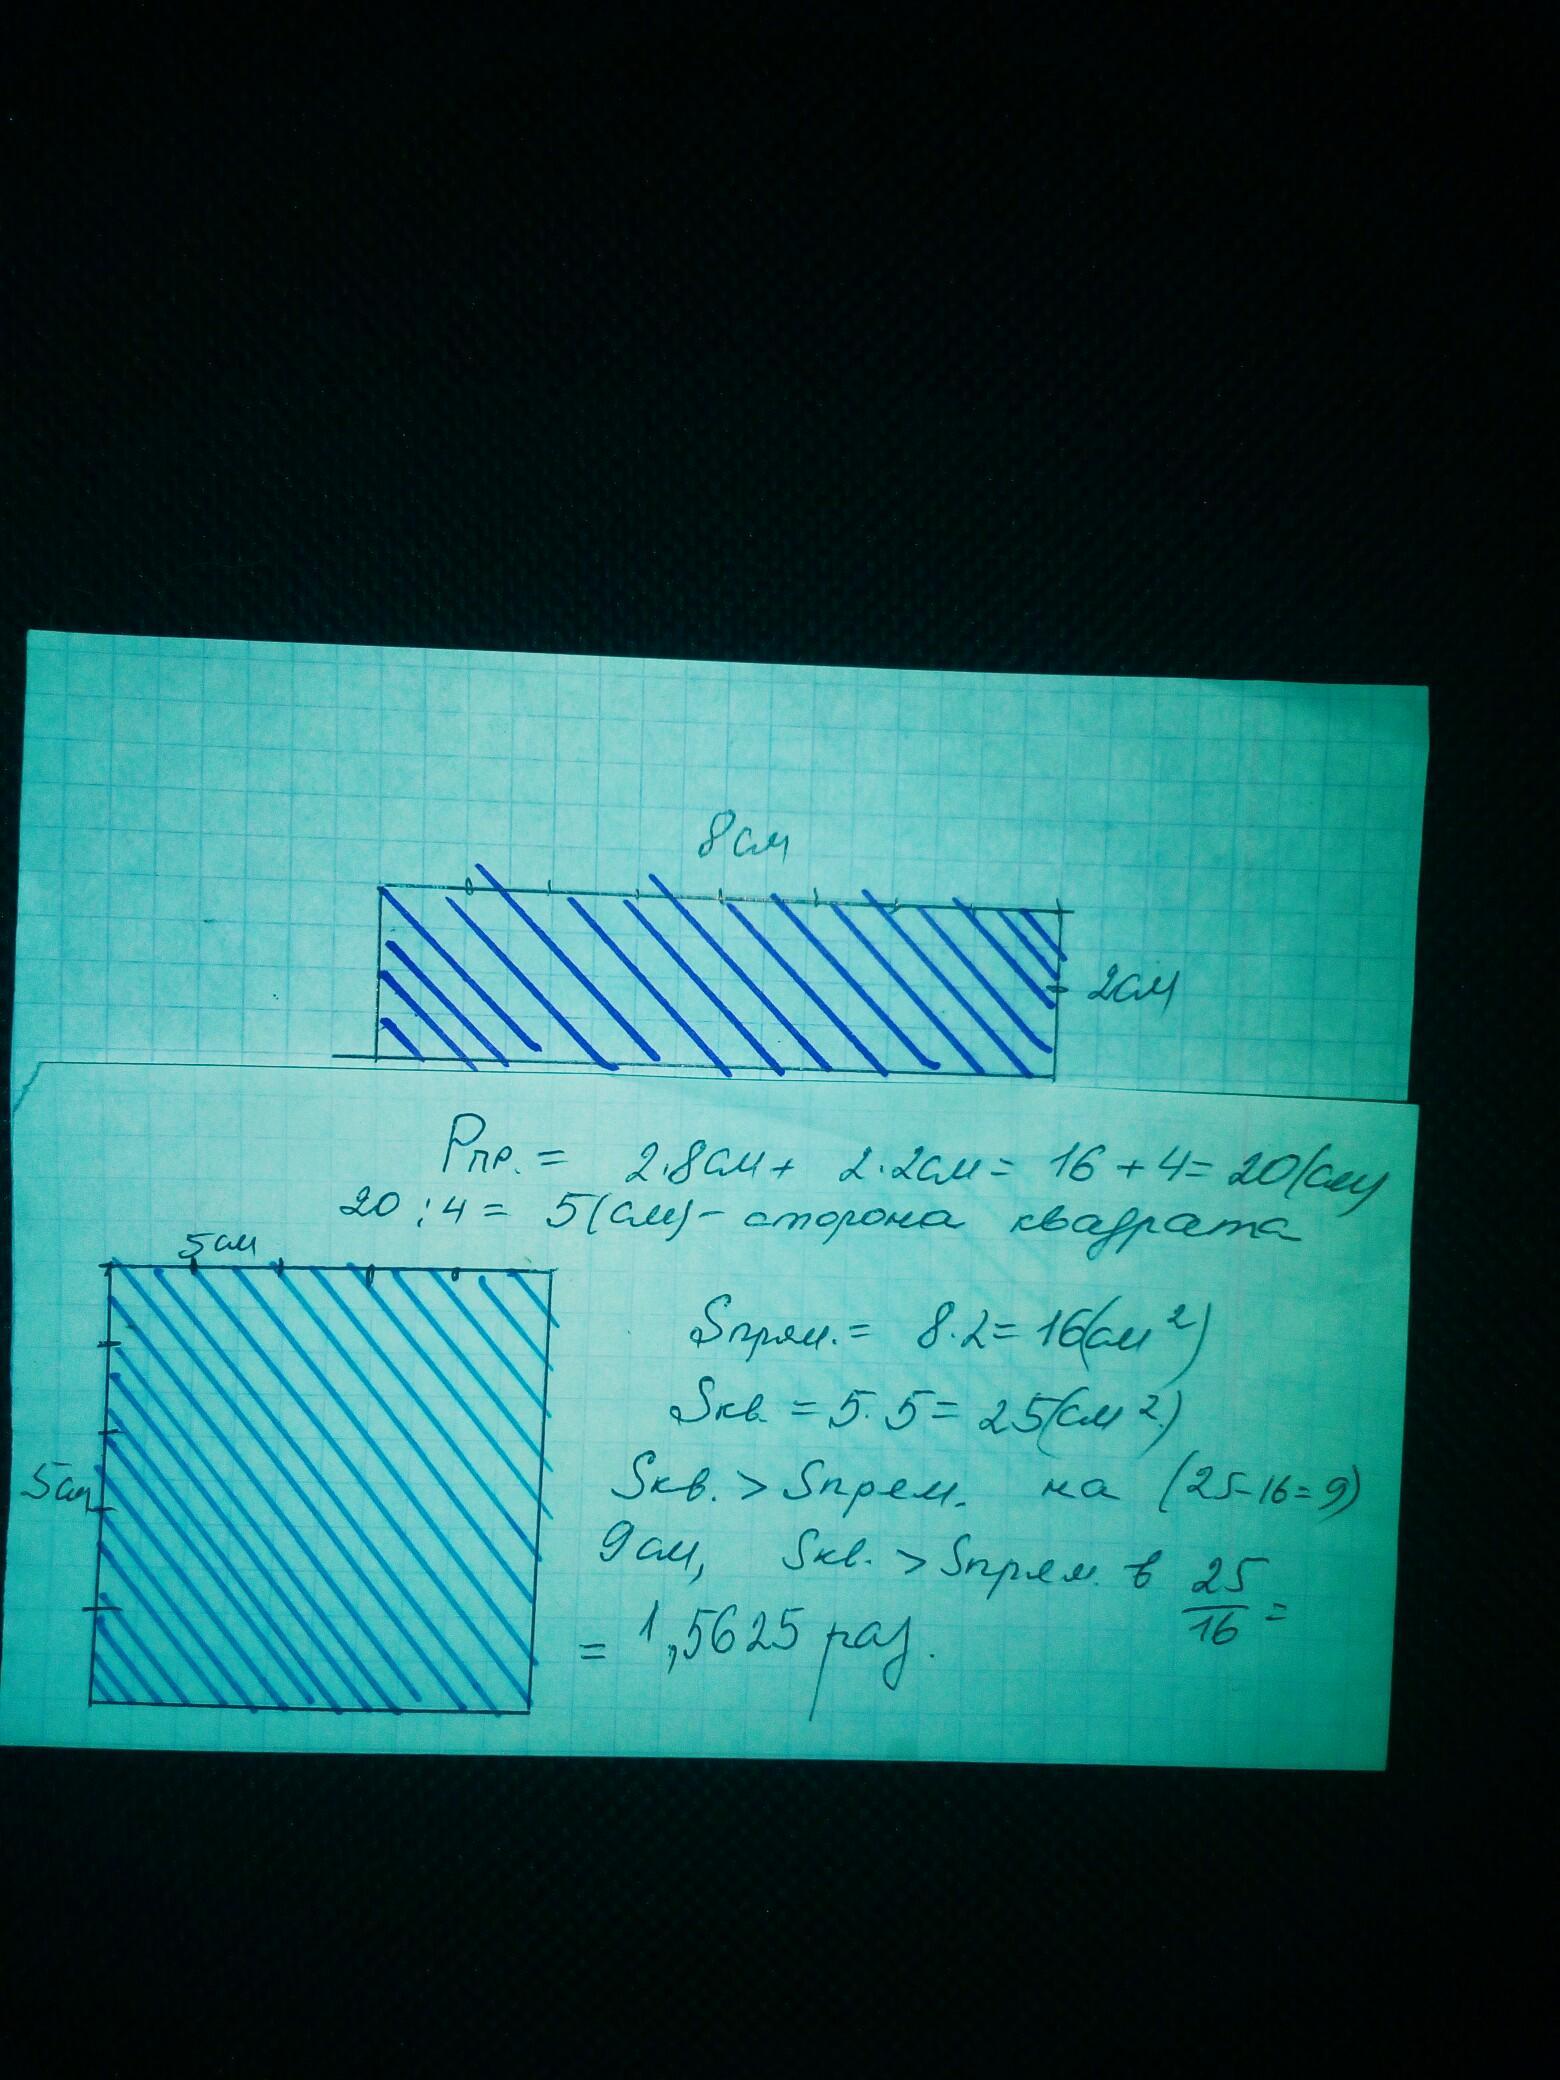 8см
2см
Pпр. = 2·8см + 2·2см = 16 + 4 = 20(см)
20 : 4 = 5(см) - сторона квадрата
5см
5см
Sпрям. = 8·2 = 16(см²)
Sкв. = 5·5 = 25(см²)
Sкв. > Sпрям. на (25-16=9)
9см, Sкв. > Sпрям. в 25/16 =
= 1,5625 раз.